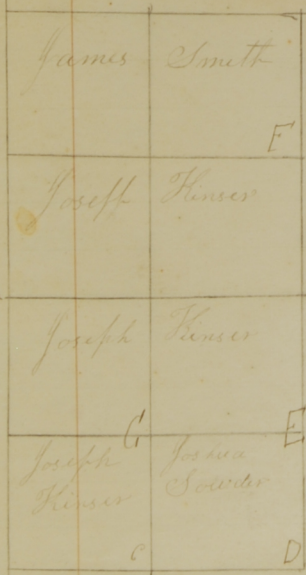 James Smith
F
Joseph Kinser
Joseph Kinser
G E
Joseph
Kinser
C
Joshua
Sowder
D